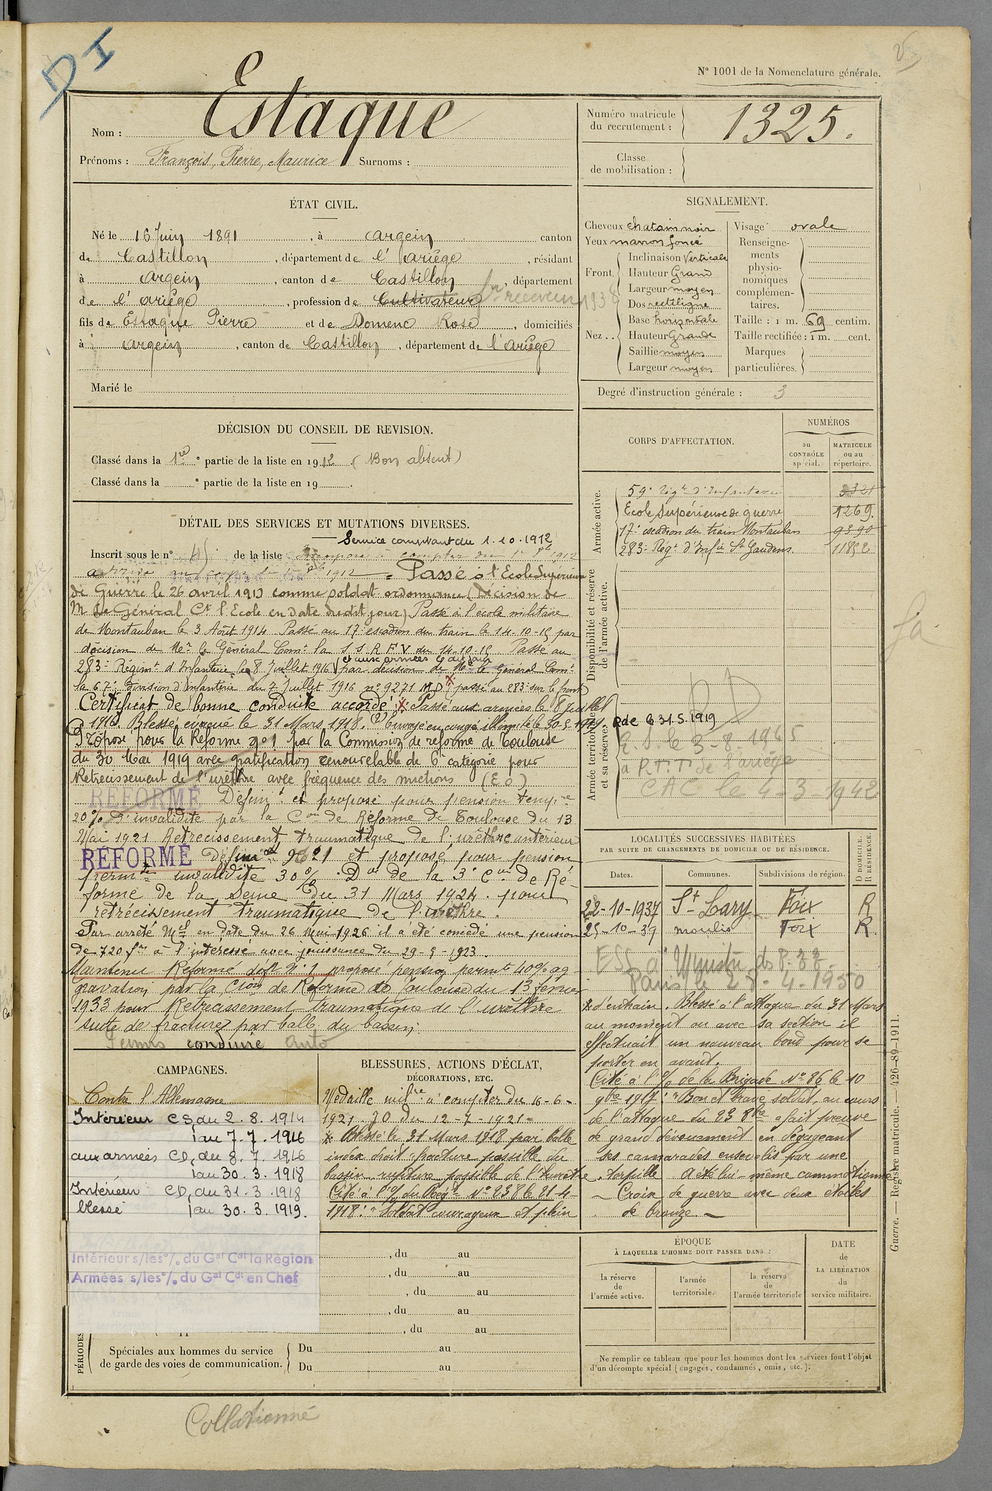 DI
N° 1001 de la Nomenclature générale.
Nom : Estaque
Prénoms : François, Pierre, Maurice Surnoms :
Numéro matricule du recrutement : 1325.
Classe de mobilisation :
ÉTAT CIVIL.
Né le 16 Juin 1891, à Argein canton
de Castillon, département de l'Ariège, résidant
à Argein, canton de Castillon, département
de l'Ariège, profession de Cultivateur receveur 1938
fils de Estaque Pierre et de Domenc Rose, domiciliés
à Argein, canton de Castillon, département de l'Ariège
Marié le
SIGNALEMENT.
Cheveux chatain noir
Yeux marron foncé
Front. Inclinaison Verticale
Hauteur Grand
Largeur moyen
Nez.. Dos rectiligne
Base horizontale
Hauteur Grande
Saillie moyen
Largeur moyen
Visage ovale
Renseignements physionomiques complémentaires.
Taille : 1 m. 69 centim.
Taille rectifiée : 1 m. cent.
Marques particulières.
Degré d'instruction générale : 3
DÉCISION DU CONSEIL DE REVISION.
Classé dans la 1re partie de la liste en 1912 (Bon absent)
Classé dans la e partie de la liste en 19
CORPS D'AFFECTATION.
NUMÉROS
au CONTRÔLE spécial.
MATRICULE ou au répertoire.
Armée active.
59e Régt d'Infanterie
Ecole Supérieure de guerre 1269.
17e escadron du train Montauban 9890
283e Rég. d'Infie St Gaudens 11852
Disponibilité et réserve de l'armée active.
Armée territoriale et sa réserve.
DÉTAIL DES SERVICES ET MUTATIONS DIVERSES.
Service comptant du 1.10.1912
Inscrit sous le n° 45 de la liste
à compter du 1912
arrivé au corps 1912 = Passé à l'Ecole Supérieure
de Guerre le 26 avril 1913 comme soldat ordonnance (Décision de
Mr Le Général Ct l'Ecole en date dudit jour) Passé à l'école militaire
de Montauban le 3 Août 1914 Passé au 17e escadron du train le 14-10-15 par
décision de Mr le Général Com. la S.S.R.F.V du 14-10-15 Passé au
283e Régimt d'Infanterie le 8 Juillet 1916 par décision de Mr le Général Comt
la 67e Division d'Infanterie du 7 Juillet 1916 n° 9271 M.D passé au 283e sur le front
Certificat de bonne conduite accordé. x Passé aux armées le 8 juillet
1916. Blessé évacué le 31 Mars 1918. Envoyé en congé illimité le 30.5.1919.
Proposé pour la Réforme n° 1 par la Commission de réforme de Toulouse
du 30 Mai 1919 avec gratification renouvelable de 6e catégorie pour
Rétrécissement de l'urèthre avec fréquence des mictions
REFORMÉ Définit et proposé pour pension tempre
20% d'invalidité par la Con de Réforme de Toulouse du 13
Mai 1921 Rétrécissement traumatique de l'urèthre antérieur
RÉFORMÉ Définit n° 1 et proposé pour pension
permte invalidité 30% Don de la 3e Con de Ré-
forme de la Seine du 31 Mars 1924. pour
rétrécissement traumatique de l'urèthre.
Par arrêté Mel en date du 26 Mai 1926 il a été concédé une pension
de 720 frs à l'intéressé avec jouissance du 29-5-1923.
Maintenu Réformé deft n° 1 proposé pension permte 40% ag-
gravation par la Cion de Réforme de Toulouse du 13 février
1933 pour Rétrécissement traumatique de l'urèthre
suite de fracture par balle du bassin.
Permis conduire auto
R.D
Rde le 31.5.1919
à P.T.T de l'ariège
CAC le 4-3-1942
LOCALITÉS SUCCESSIVES HABITÉES
PAR SUITE DE CHANGEMENTS DE DOMICILE OU DE RÉSIDENCE.
Dates. Communes. Subdivisions de région. D DOMICILE. R RÉSIDENCE.
22-10-1937 St Lary Foix R
25-10-39 moulis Foix R.
Paris le 28-4-1950
x d'entrain. Blessé à l'attaque du 31 Mars
au moment où avec sa section il
effectuait un nouveau bond pour se
porter en avant.
Cité à l'o/ de la Brigade N° 86 le 10
9bre 1917 : "Bon et brave soldat, au cours
de l'attaque du 23 8bre a fait preuve
de grand dévouement en dégageant
ses camarades ensevelis par une
torpille A été lui-même commotionné
Croix de guerre avec deux étoiles
de bronze
CAMPAGNES.
Contre l'Allemagne
Intérieur CS du 2.8.1914
au 7.7.1916
aux armées CD du 8.7.1916
au 30.3.1918
Intérieur CD du 31.3.1918
blessé au 30.3.1919.
Intérieur s/les o/. du Gal Cdt la Région
Armées s/les o/. du Gal Cdt en Chef
BLESSURES, ACTIONS D'ÉCLAT, DÉCORATIONS, ETC.
Médaille milre à compter du 16-6-
1921. JO du 12-7-1921-
x Blessé le 31 Mars 1918 par balle
index droit fracture possible du
bassin rupture possible de l'urèthre
Cité à l'o/ du Régt N° 238 le 21-4-
1918 : "Soldat courageux et plein
PÉRIODES
, du au
, du au
, du au
, du au
, du au
Spéciales aux hommes du service de garde des voies de communication.
Du au
Du au
ÉPOQUE
À LAQUELLE L'HOMME DOIT PASSER DANS :
la réserve de l'armée active.
l'armée territoriale.
la réserve de l'armée territoriale
DATE de LA LIBÉRATION du service militaire.
Ne remplir ce tableau que pour les hommes dont les services font l'objet
d'un décompte spécial (engagés, condamnés, omis, etc.).
Guerre. — Registre matricule. — 426-89-1911.
Collationné